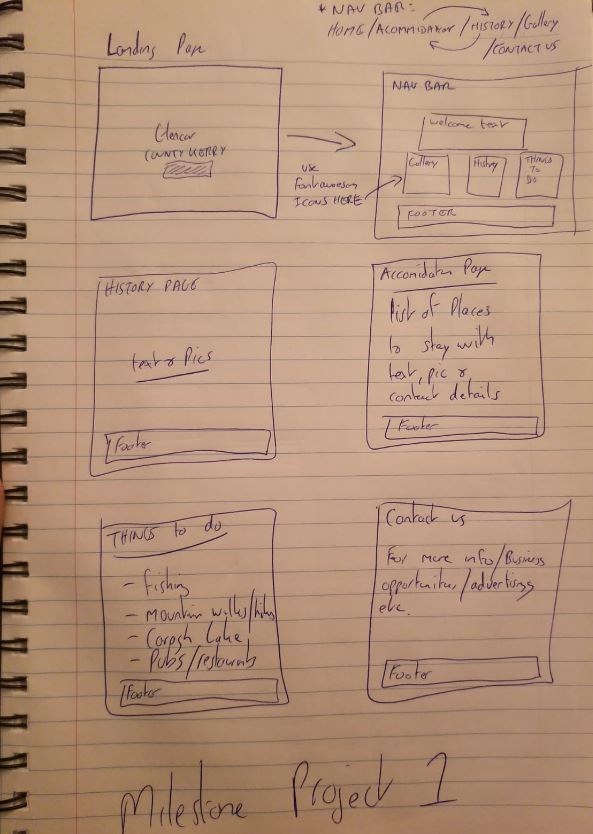 * NAV BAR:
HOME/ACOMMIDATION/HISTORY/Gallery
/CONTACT US
Landing Page
Glencar
COUNTY KERRY
NAV BAR
welcome text
Gallery
History
THINGS
TO
DO
FOOTER
use
Fontawesom
ICONS HERE
HISTORY PAGE
text & Pics
Footer
Accomidation Page
list of Places
to stay with
text, pic &
contact details
Footer
THINGS to do
- Fishing
- Mountain walks/hikes
- Lake
- Pubs/restaurants
Footer
Contact us
For more info/Business
opportunities/advertising
etc.
Footer
Milestone Project 1